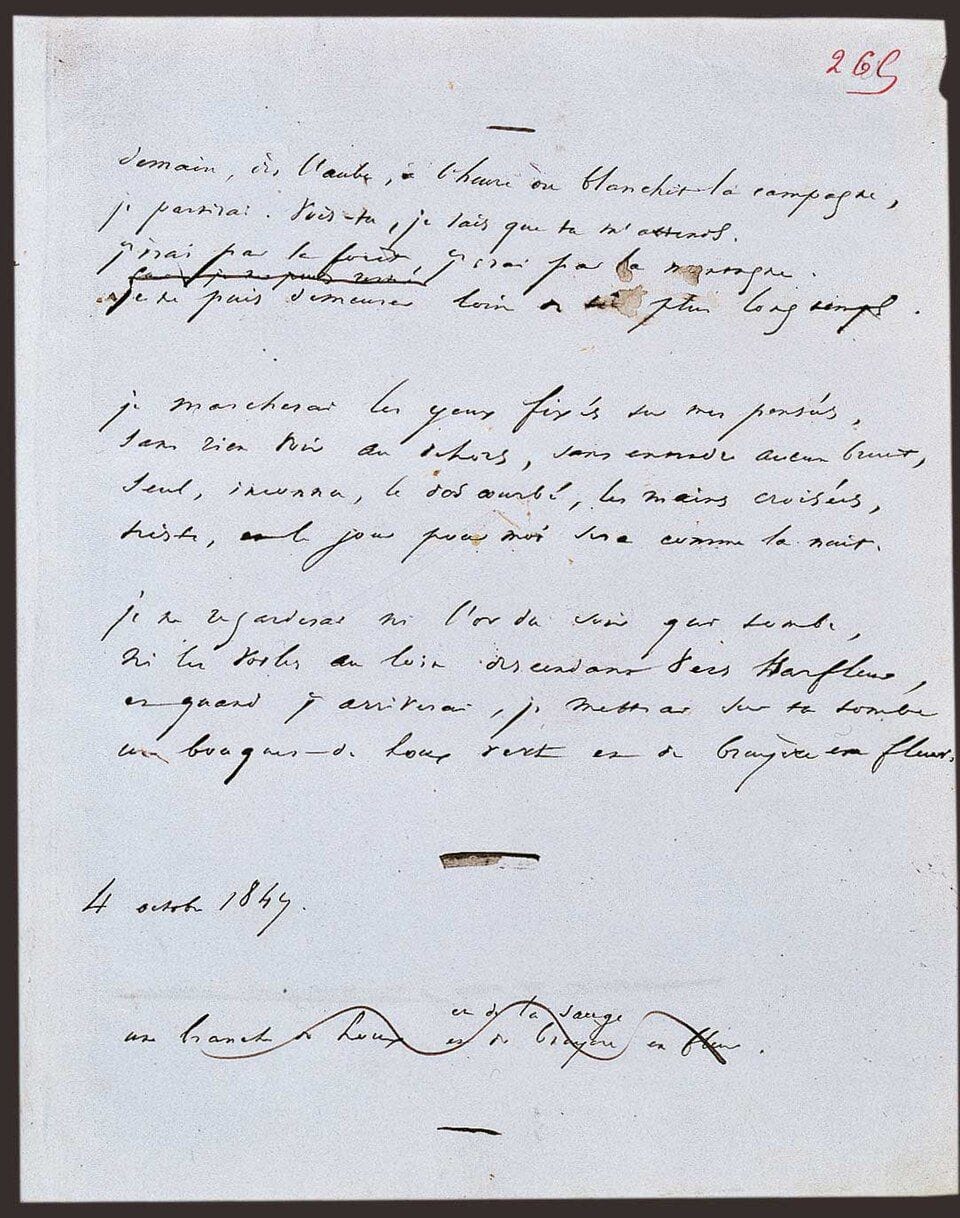 265
demain, dès l'aube, à l'heure où blanchit la campagne,
je partirai. Vois-tu, je sais que tu m'attends.
j'irai par la forêt j'irai par la montagne.
car je ne puis
je ne puis demeurer loin de toi plus longtemps.
je marcherai les yeux fixés sur mes pensées,
sans rien voir au dehors, sans entendre aucun bruit,
seul, inconnu, le dos courbé, les mains croisées,
triste, et le jour pour moi sera comme la nuit.
je ne regarderai ni l'or du soir qui tombe,
ni les voiles au loin descendant vers Harfleur,
et quand j'arriverai, je mettrai sur ta tombe
un bouquet de houx vert et de bruyère en fleur.
4 octobre 1847.
et de la sauge
une branche de houx et de bruyère en fleur.